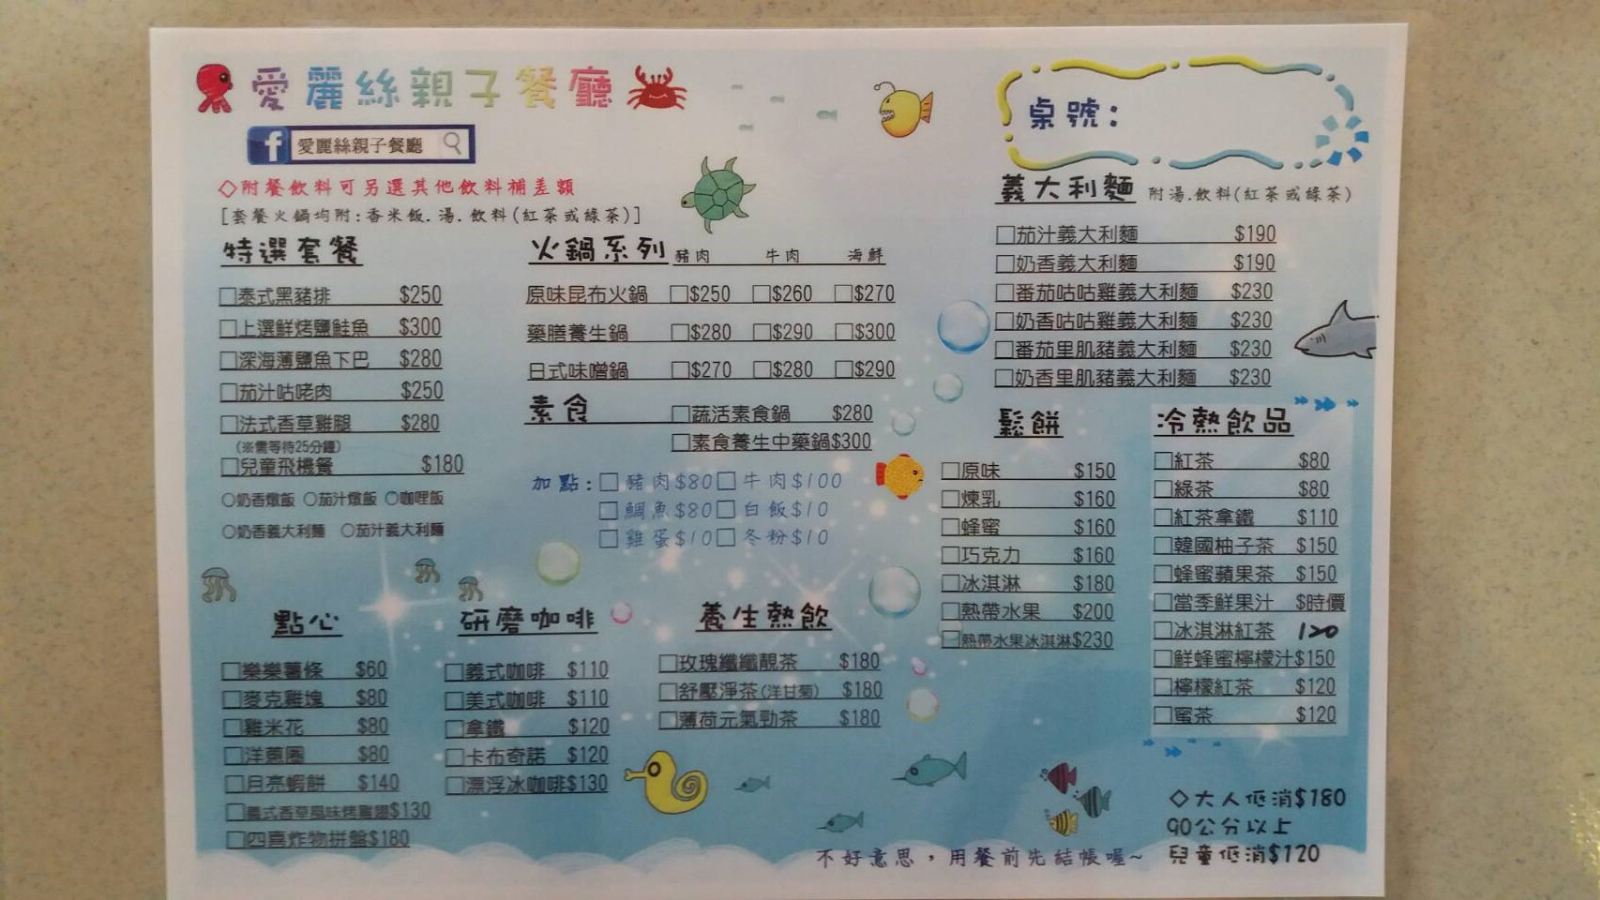 愛麗絲親子餐廳
f 愛麗絲親子餐廳
桌號:
◇附餐飲料可另選其他飲料補差額
[套餐火鍋均附:香米飯.湯.飲料(紅茶或綠茶)]
特選套餐
□泰式黑豬排 $250
□上選鮮烤鹽鮭魚 $300
□深海薄鹽魚下巴 $280
□茄汁咕咾肉 $250
□法式香草雞腿 $280
(※需等待25分鐘)
□兒童飛機餐 $180
○奶香燉飯 ○茄汁燉飯 ○咖哩飯
○奶香義大利麵 ○茄汁義大利麵
火鍋系列 豬肉 牛肉 海鮮
原味昆布火鍋 □$250 □$260 □$270
藥膳養生鍋 □$280 □$290 □$300
日式味噌鍋 □$270 □$280 □$290
素食 □蔬活素食鍋 $280
□素食養生中藥鍋$300
加點:□豬肉$80□牛肉$100
□鯛魚$80□白飯$10
□雞蛋$10□冬粉$10
義大利麵 附湯.飲料(紅茶或綠茶)
□茄汁義大利麵 $190
□奶香義大利麵 $190
□番茄咕咕雞義大利麵 $230
□奶香咕咕雞義大利麵 $230
□番茄里肌豬義大利麵 $230
□奶香里肌豬義大利麵 $230
鬆餅
□原味 $150
□煉乳 $160
□蜂蜜 $160
□巧克力 $160
□冰淇淋 $180
□熱帶水果 $200
□熱帶水果冰淇淋$230
冷熱飲品
□紅茶 $80
□綠茶 $80
□紅茶拿鐵 $110
□韓國柚子茶 $150
□蜂蜜蘋果茶 $150
□當季鮮果汁 $時價
□冰淇淋紅茶 120
□鮮蜂蜜檸檬汁$150
□檸檬紅茶 $120
□蜜茶 $120
點心
□樂樂薯條 $60
□麥克雞塊 $80
□雞米花 $80
□洋蔥圈 $80
□月亮蝦餅 $140
□義式香草風味烤雞翅$130
□四喜炸物拼盤$180
研磨咖啡
□義式咖啡 $110
□美式咖啡 $110
□拿鐵 $120
□卡布奇諾 $120
□漂浮冰咖啡$130
養生熱飲
□玫瑰纖纖靚茶 $180
□舒壓淨茶(洋甘菊) $180
□薄荷元氣勁茶 $180
◇大人低消$180
90公分以上
兒童低消$120
不好意思，用餐前先結帳喔~